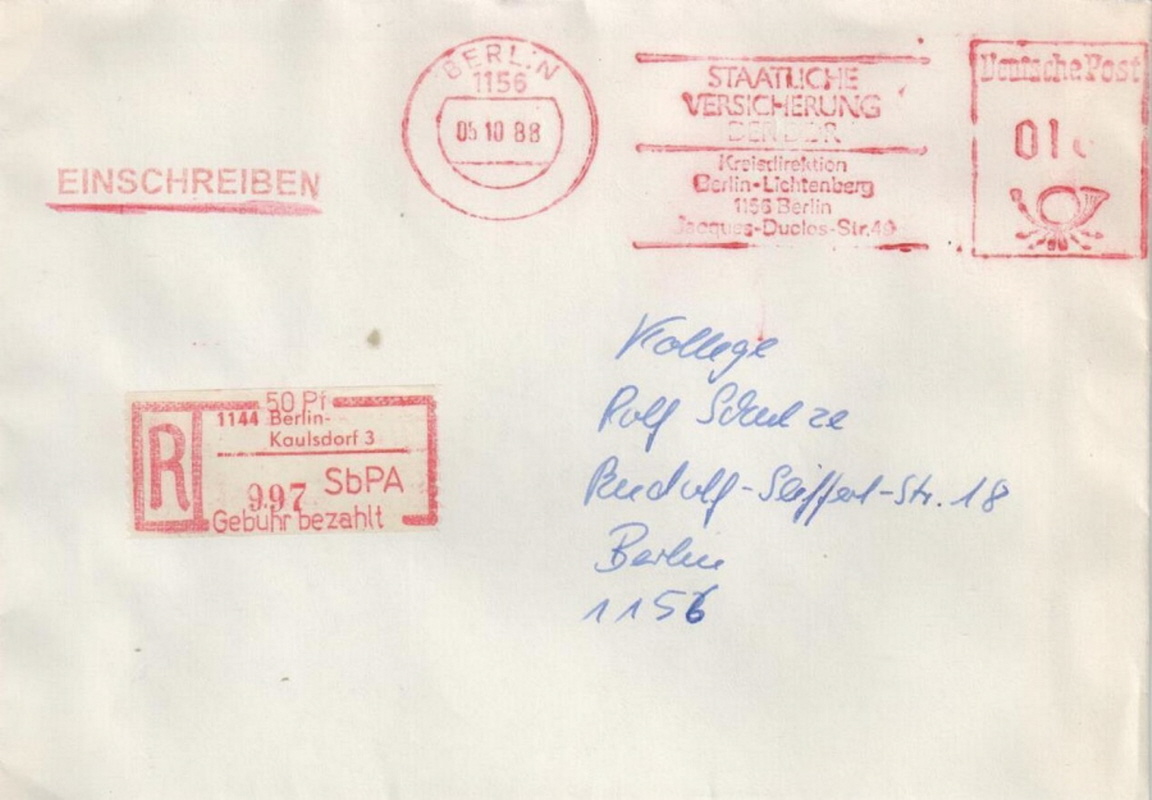 BERLIN
1156
05 10 88
STAATLICHE
VERSICHERUNG
DER DDR
Kreisdirektion
Berlin-Lichtenberg
1156 Berlin
Jacques-Duclos-Str. 49
Deutsche Post
01
EINSCHREIBEN
50 Pf
1144 Berlin-
Kaulsdorf 3
R
997 SbPA
Gebühr bezahlt
Kollege
Rolf Schulze
Rudolf-Seiffert-Str. 18
Berlin
1156